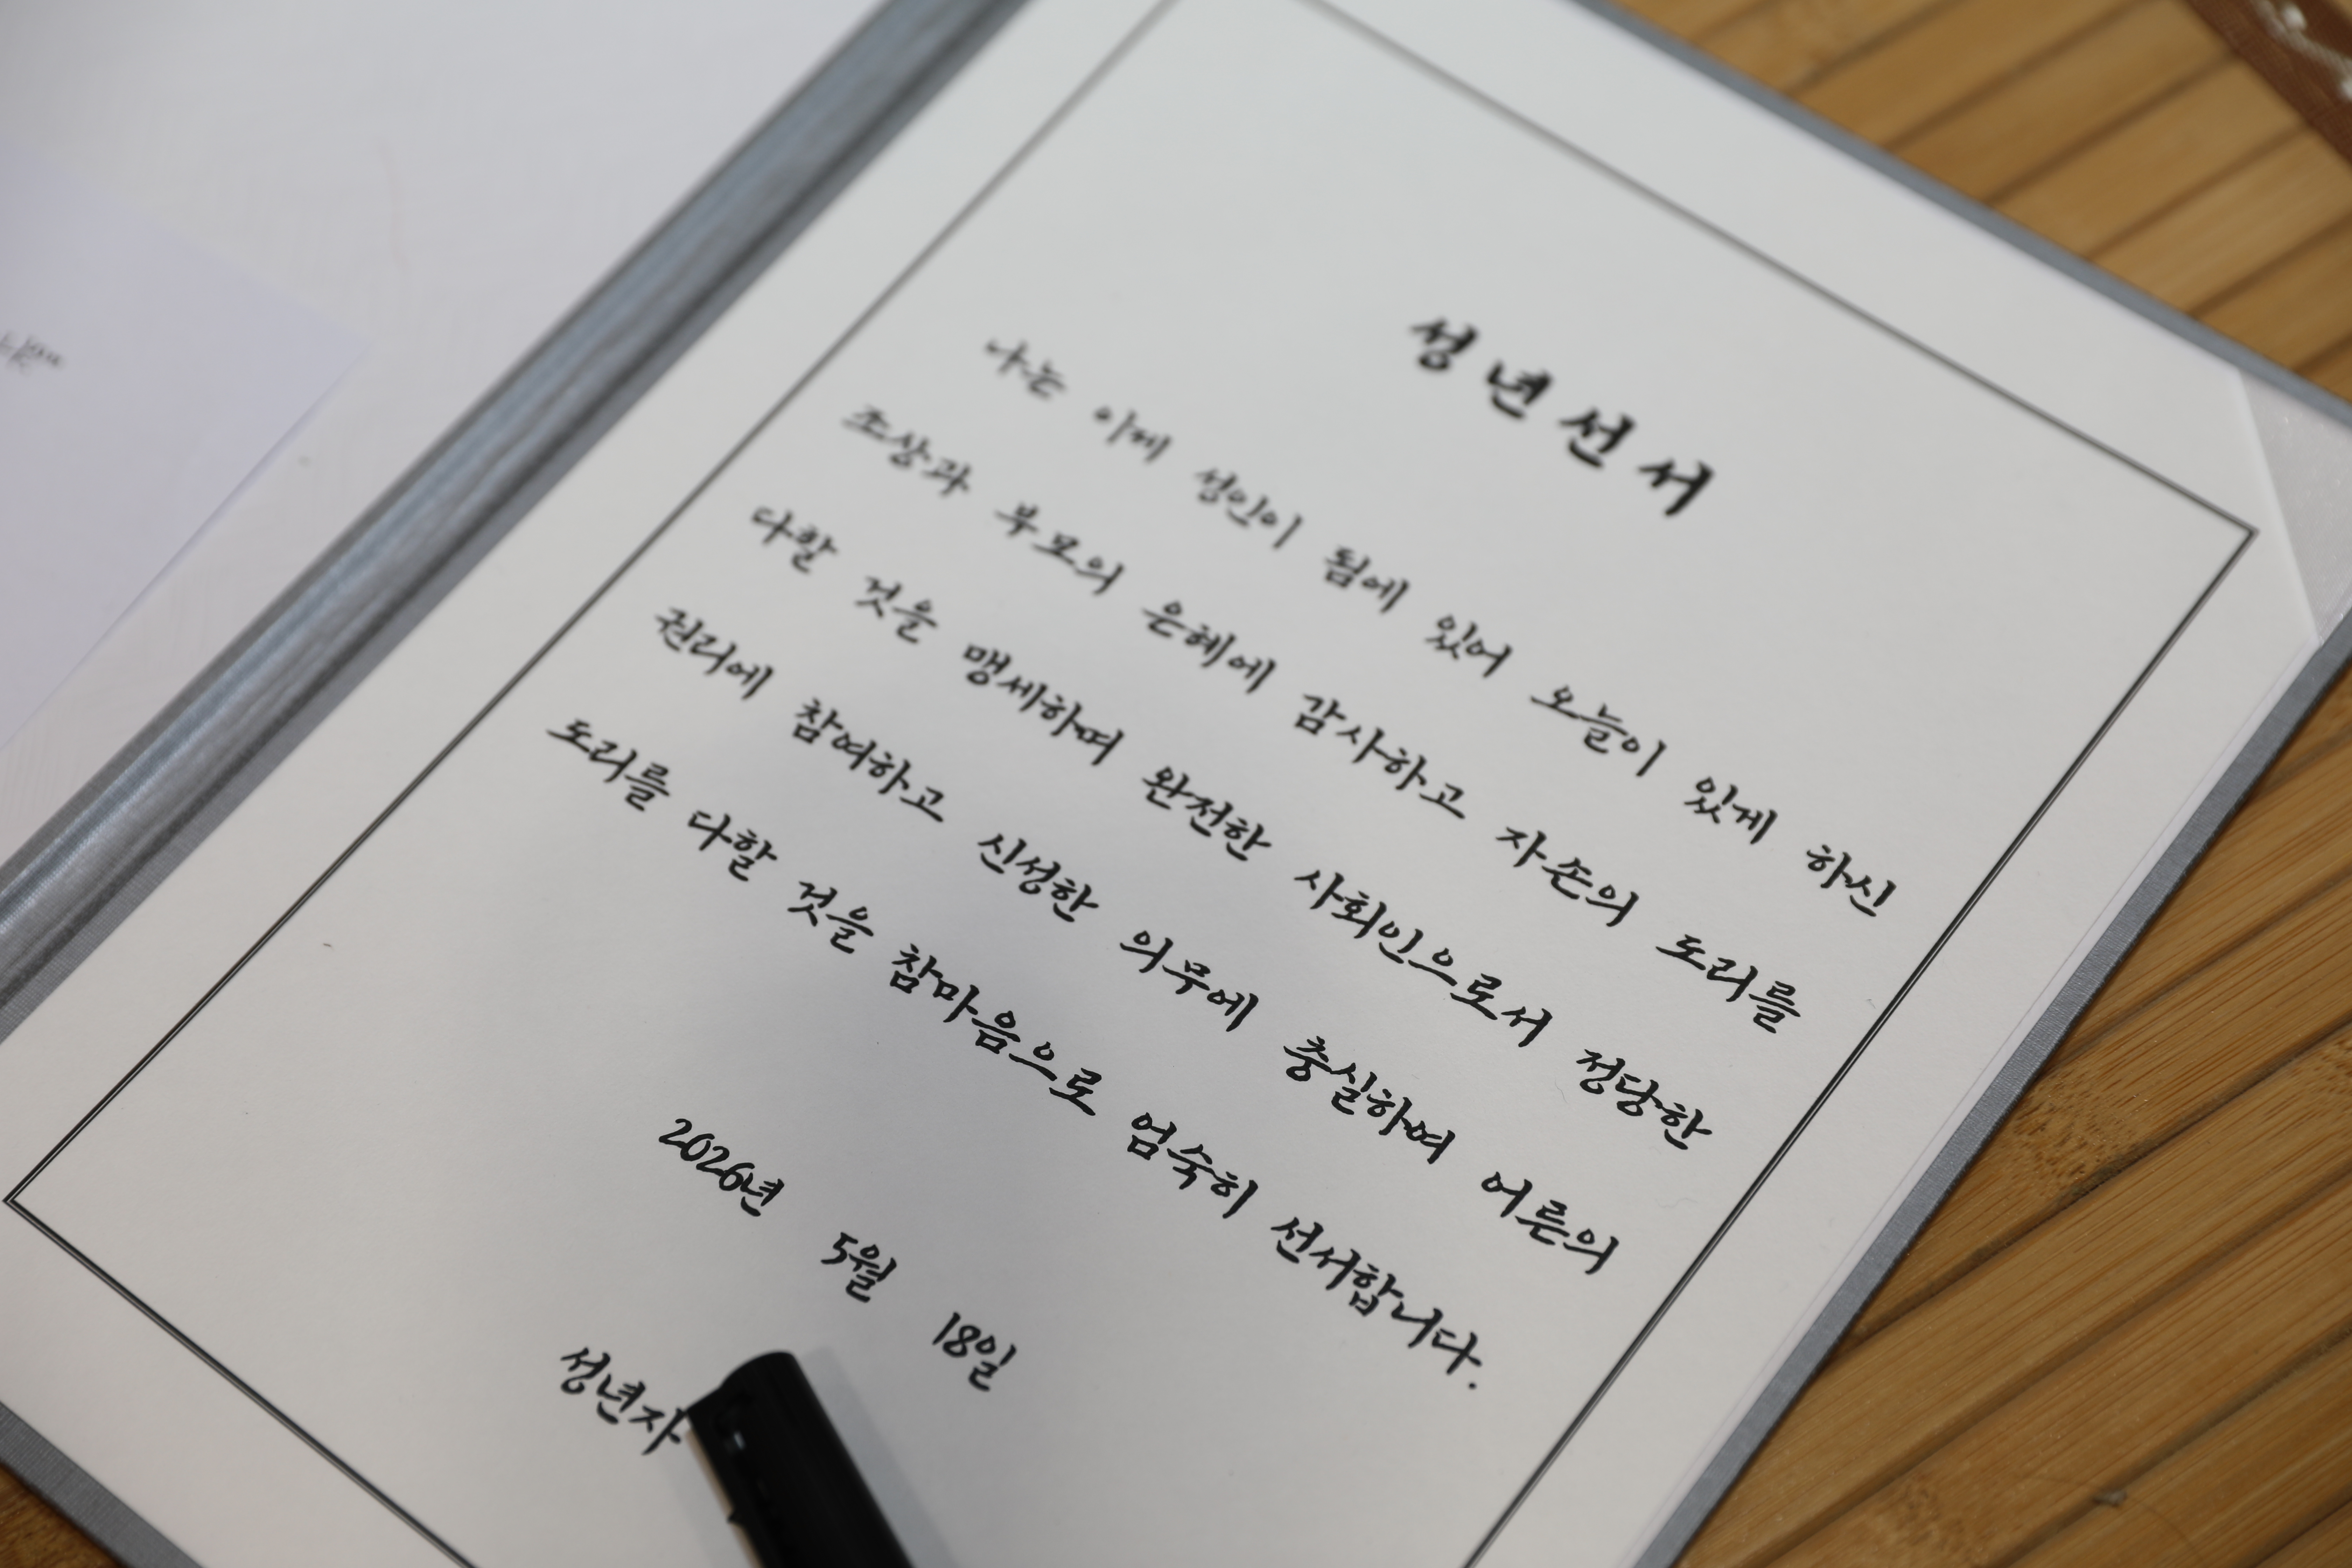 성년선서
나는 이제 성인이 됨에 있어 오늘이 있게 하신
조상과 부모의 은혜에 감사하고 자손의 도리를
다할 것을 맹세하며 완전한 사회인으로서 정당한
권리에 참여하고 신성한 의무에 충실하여 어른의
도리를 다할 것을 참마음으로 엄숙히 선서합니다.
2026년 5월 18일
성년자